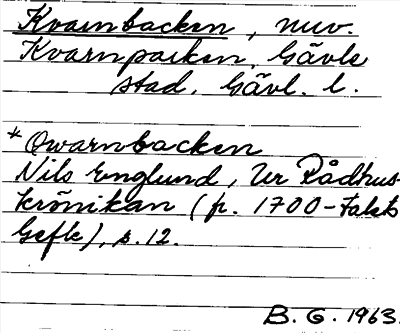 Kvarnbacken, nuv.
Kvarnparken, Gävle
stad, Gävl. l.
*Qwarnbacken
Nils Englund, Ur Rådhus-
krönikan (fr. 1700-talets
Gefle), s. 12.
B. G. 1963.